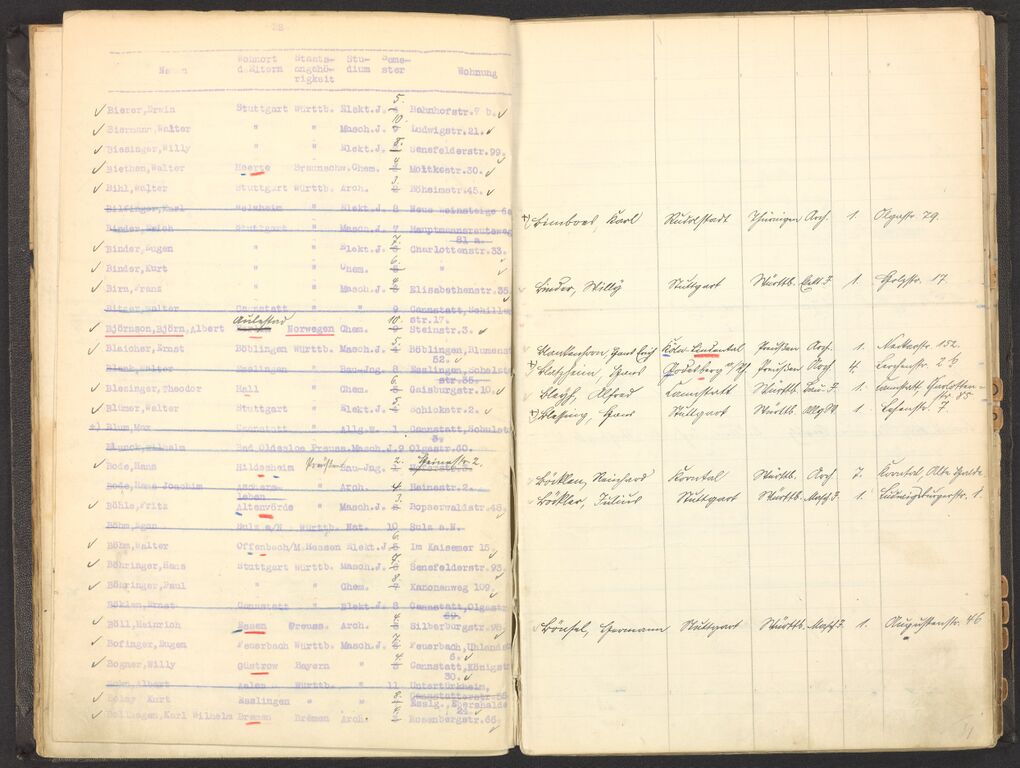 28
Namen Wohnort d.Eltern Staats-angehö-rigkeit Stu-dium Seme-ster Wohnung
Bierer,Erwin Stuttgart Württb. Elekt.J. 5. Bahnhofstr.7 b.
Biermann,Walter " " Masch.J. 10. Ludwigstr.21.
Biesinger,Willy " " Elekt.J. 8. Senefelderstr.99.
Biethan,Walter Braunschw. Chem. 4 Moltkestr.30.
Bihl,Walter Stuttgart Württb. Arch. 3. Böheimstr.45.
Bilfinger,Karl Welzheim " Elekt.J. 8 Neue Weinsteige 6a
Binder,Erich Stuttgart " Masch.J. 7 Hauptmannsreuteweg
81 a.
Binder,Eugen " " Elekt.J. 7. Charlottenstr.33.
Binder,Kurt " " Chem. 6. "
Birn,Franz " " Masch.J. 4 Elisabethenstr.35
Bitzer,Walter Cannstatt " " 9 Cannstatt,Schiller
str.17.
Björnson,Björn,Albert Aulestad Norwegen Chem. 10. Steinstr.3.
Blaicher,Ernst Böblingen Württb. Masch.J. 5. Böblingen,Blumenst
52.
Blank,Walter Esslingen " Bau-Jng. 8 Esslingen,Schelzt
str.35.
Blezinger,Theodor Hall " Chem. 6. Gaisburgstr.10.
Blümer,Walter Stuttgart " Elekt.J. 5. Schickstr.2.
Blum,Max Cannstatt " Allg.W. 1 Cannstatt,Schulst
3.
Blunck,Wilhelm Bad Oldesloe Preuss. Masch.J. 9 Olgastr.60.
Bode,Hans Hildesheim Preußen Bau-Jng. 2. Heinestr. 2.
Bode,Hans Joachim Aschers-leben " Arch. 4. Heinestr.2.
Böhle,Fritz Altenvörde " Masch.J. 3. Bopserwaldstr.48
Böhm,Egon Sulz a/N Württb. Nat. 10 Sulz a.N.
Böhm,Walter Offenbach/M Hessen Elekt.J. 6. Im Kaisemer 15
Böhringer,Hans Stuttgart Württb. Masch.J. 7. Senefelderstr.93.
Böhringer,Paul " " Chem. 8. Kanonenweg 109.
Böklen,Ernst Cannstatt " Elekt.J. 8 Cannstatt,Olgast
59.
Böll,Heinrich Essen Preuss. Arch. 4. Silberburgstr.95.
Bofinger,Eugen Feuerbach Württb. Masch.J. 7. Feuerbach,Uhlands
6.
Bogner,Willy Güstrow Bayern " 4. Cannstatt,Königst
30.
Bohn,Albert Aalen Württb. " 11 Untertürkheim,
Cannstatterstr.58
Bolay Kurt Esslingen " " 8. Esslg.,Ebershalde
22.
Bollhagen,Karl Wilhelm Bremen Bremen Arch. 4 Rosenbergstr.66.
Karl Rudolstadt Thüringen Arch. 1. Olgastr. 29.
Binder, Willy Stuttgart Württb. 1. 17.
Blankenhorn, Hans Erich Köln-Lindental Preußen Arch. 1. Neckarstr. 152.
Hans Godesberg a/Rh Preußen Arch 4. Lerchenstr. 2
Alfred Cannstatt Württb. Bau-J. 1. Cannstatt, Charlotten-
str. 85
Blessing, Hans Stuttgart Württb. 1. 7
Böcklen, Reinhard Korntal Württb. Arch. 7. Korntal,
Böckler, Julius Stuttgart Württb. Masch.J. 1. Ludwigsburgerstr. 1.
Hermann Stuttgart Württb. Masch.J. 1. Augustenstr. 46